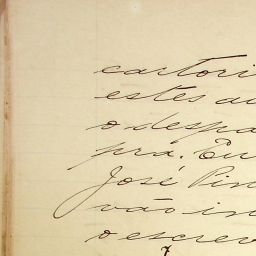 cartori
estes au
o despa
pra. Eu
José Pin
vão in
o escrev